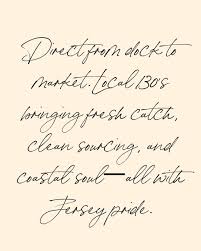 Direct from dock to
market. Local 130's
bringing fresh catch,
clean sourcing, and
coastal soul—all with
Jersey pride.